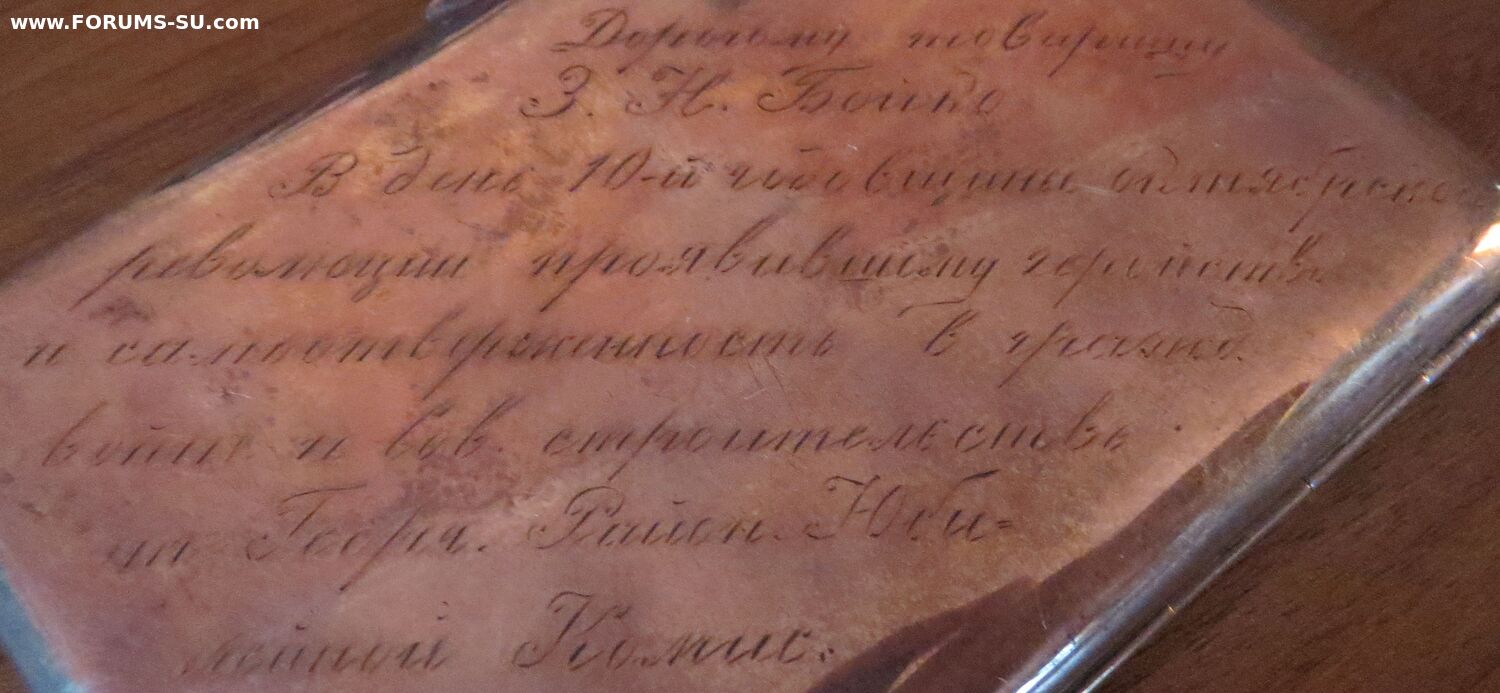 www.FORUMS-SU.com
Дорогому товарищу
З. Н. Бойко
В день 10-й годовщины октябрьской
революции проявившему геройство
и самоотверженность в гражд.
войне и сов. строительстве.
от Георг. Район. Юби=
лейной Комис.